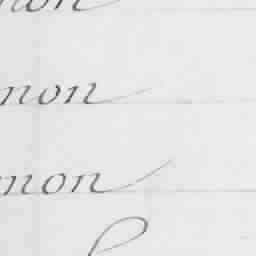 non
non
mon